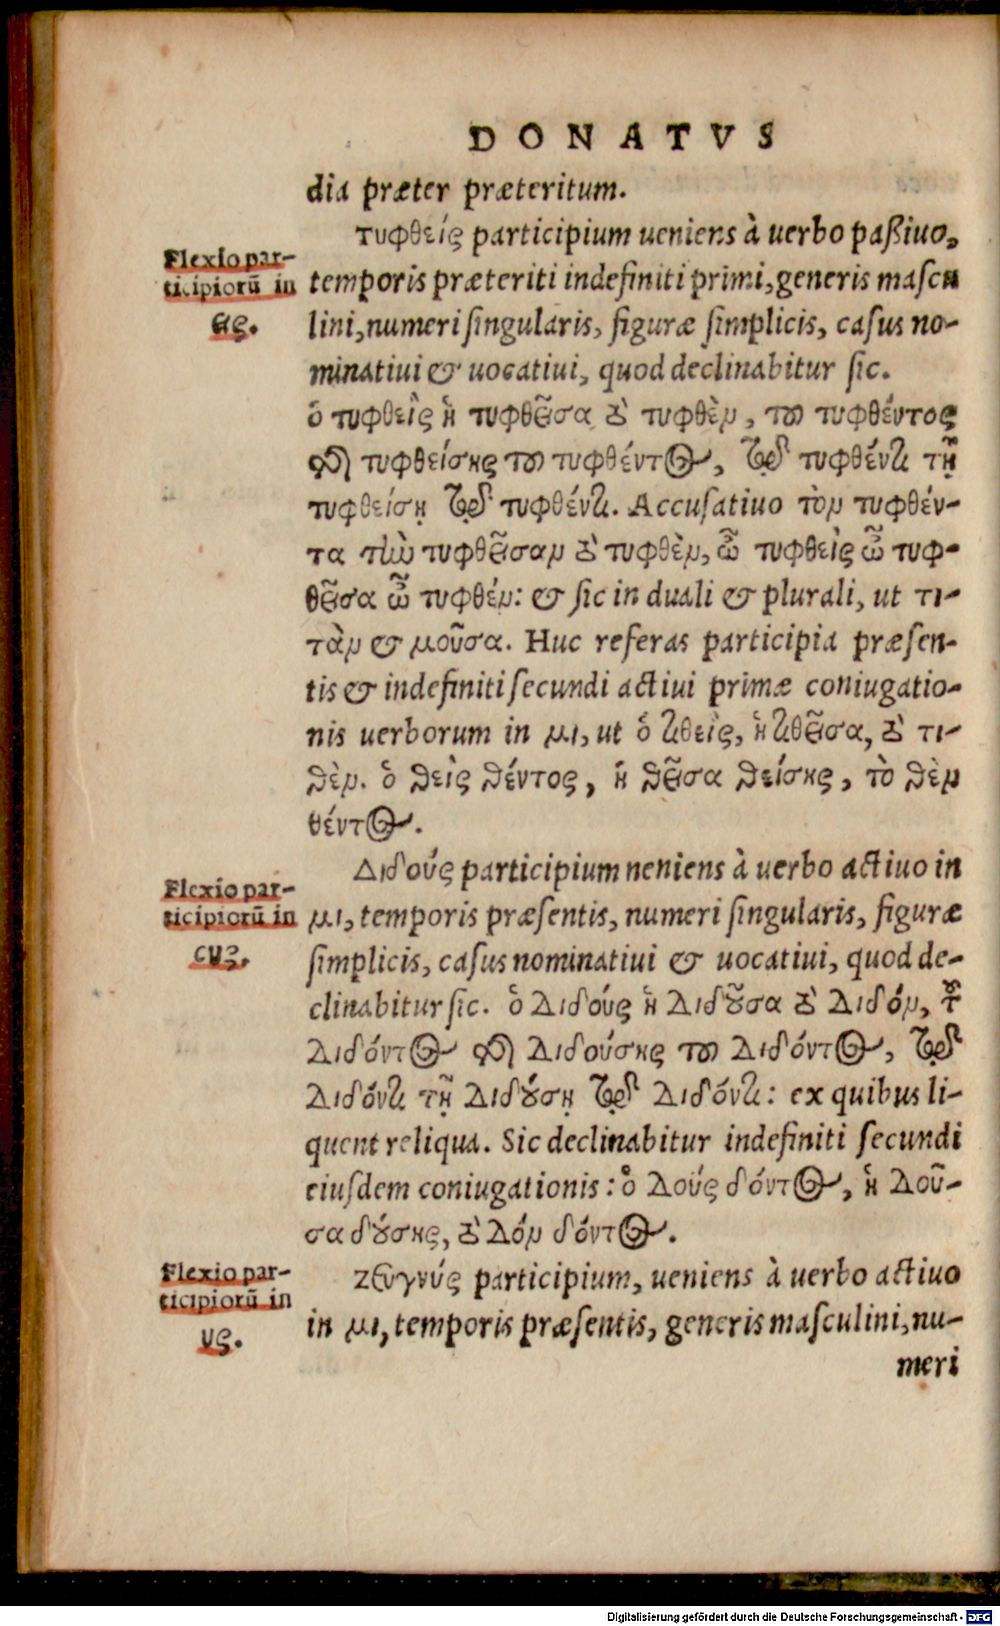 DONATVS
dia præter præteritum.
τυφθείς participium ueniens à uerbo paßiuo,
Flexio par-
ticipiorū in
ες.
temporis præteriti indefiniti primi, generis mascu
lini, numeri singularis, figuræ simplicis, casus no-
minatiui & uocatiui, quod declinabitur sic.
ὁ τυφθεὶς ἡ τυφθεῖσα τὸ τυφθὲν, τοῦ τυφθέντος
τῆς τυφθείσης τοῦ τυφθέντος, τῷ τυφθέντι τῇ
τυφθείσῃ τῷ τυφθέντι. Accusatiuo τὸν τυφθέν-
τα τὴν τυφθεῖσαν τὸ τυφθὲν, ὦ τυφθεὶς ὦ τυφ-
θεῖσα ὦ τυφθέν: & sic in duali & plurali, ut τι-
τὰν & μοῦσα. Huc referas participia præsen-
tis & indefiniti secundi actiui primæ coniugatio-
nis uerborum in μι, ut ὁ τιθεὶς, ἡ τιθεῖσα, τὸ τι-
θέν. ὁ θεὶς θέντος, ἡ θεῖσα θείσης, τὸ θὲν
θέντος.
Διδούς participium neniens à uerbo actiuo in
Flexio par-
ticipiorū in
ους.
μι, temporis præsentis, numeri singularis, figuræ
simplicis, casus nominatiui & uocatiui, quod de-
clinabitur sic. ὁ διδούς ἡ διδοῦσα τὸ διδόν, τοῦ
διδόντος τῆς διδούσης τοῦ διδόντος, τῷ
διδόντι τῇ διδούσῃ τῷ διδόντι: ex quibus li-
quent reliqua. Sic declinabitur indefiniti secundi
eiusdem coniugationis: ὁ δούς δόντος, ἡ δοῦ-
σα δούσης, τὸ δόν δόντος.
Flexio par-
ticipiorū in
υς.
ζευγνύς participium, ueniens à uerbo actiuo
in μι, temporis præsentis, generis masculini, nu-
meri
Digitalisierung gefördert durch die Deutsche Forschungsgemeinschaft - DFG